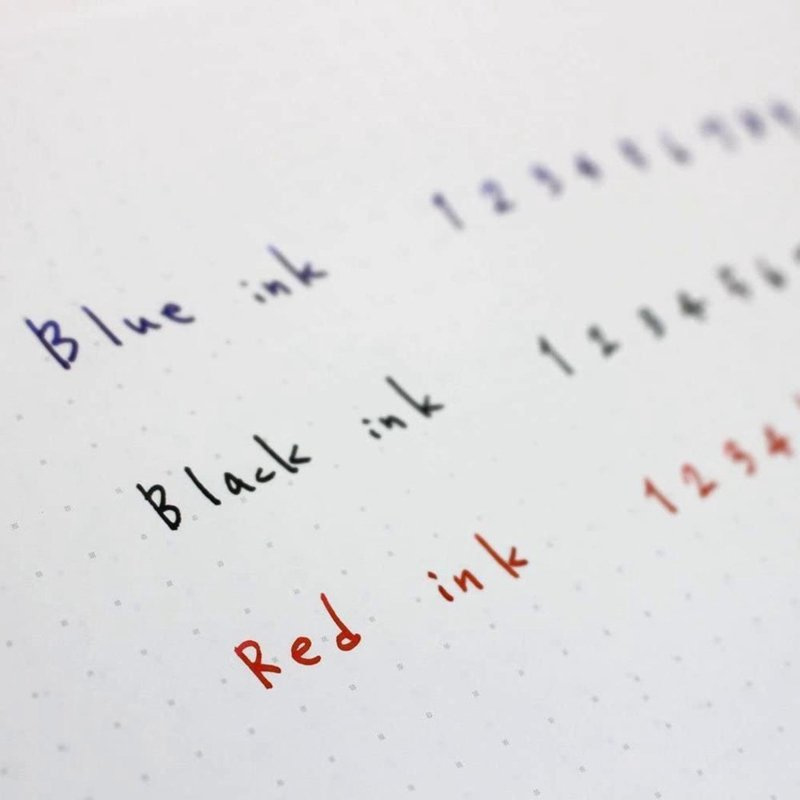 Blue ink 1 2 3 4 5 6 7 8 9
Black ink 1 2 3 4 5 6
Red ink 1 2 3 4